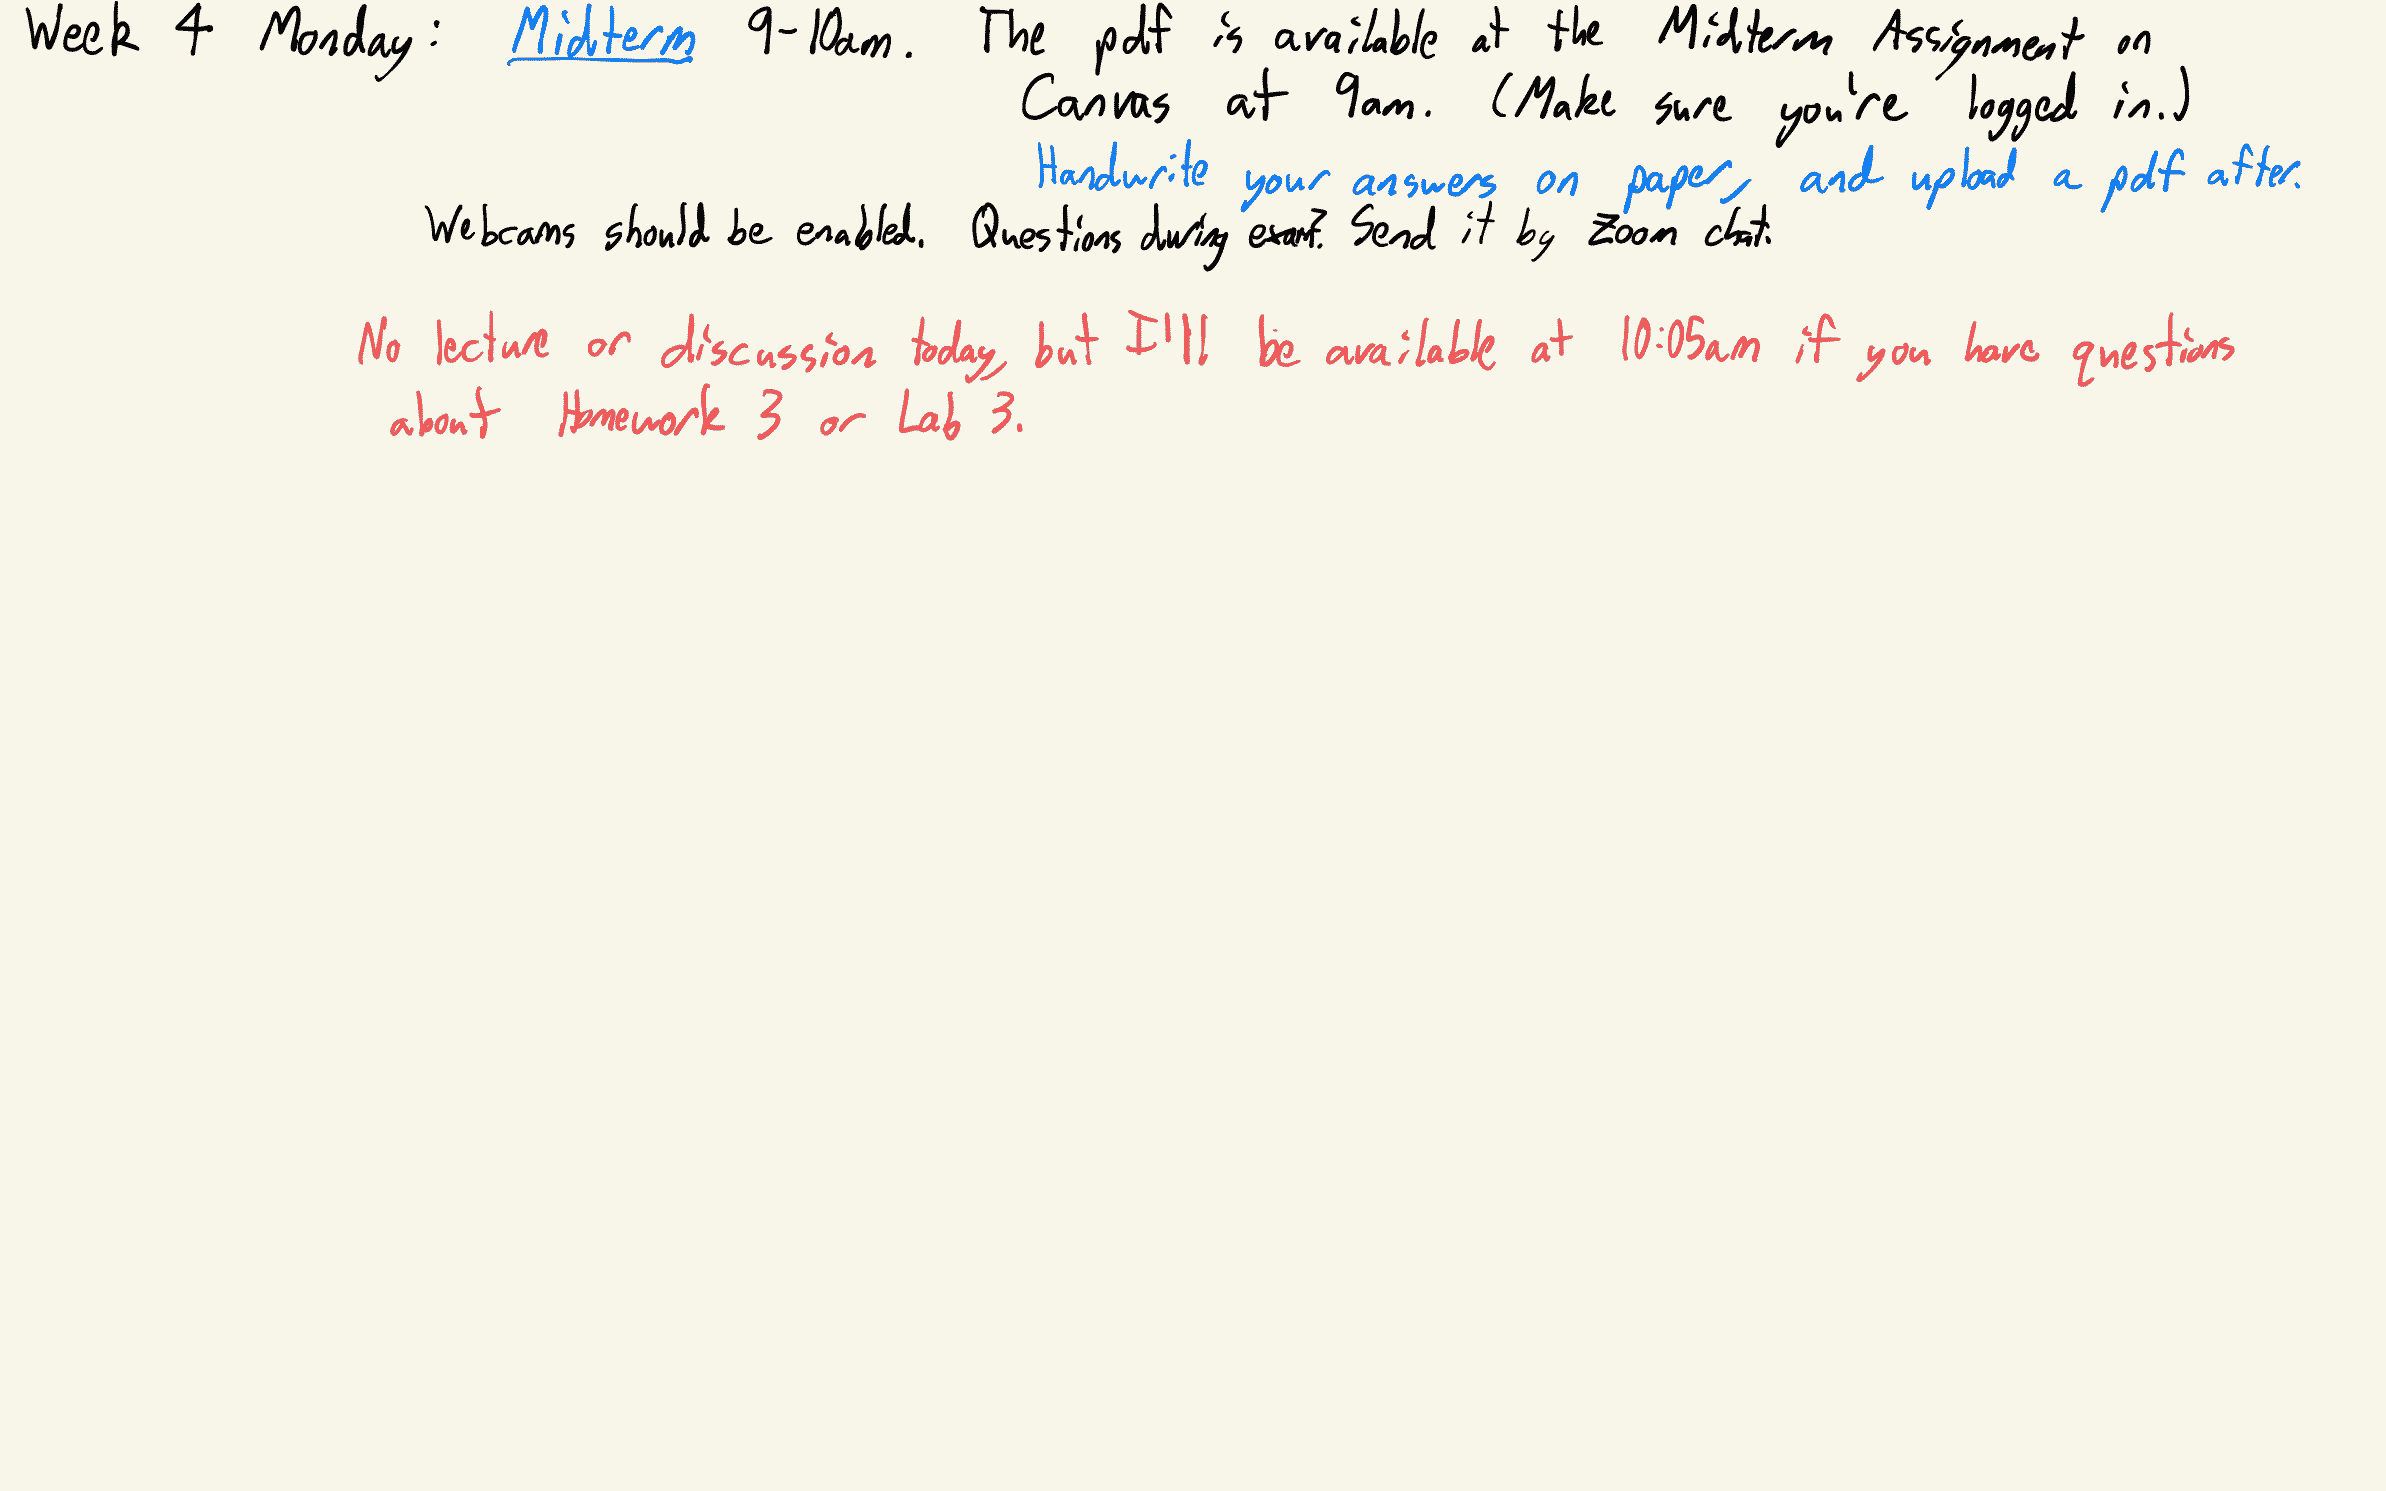 Week 4 Monday: Midterm 9-10am. The pdf is available at the Midterm Assignment on
Canvas at 9am. (Make sure you're logged in.)
Handwrite your answers on paper, and upload a pdf after.
Webcams should be enabled. Questions during exam? Send it by Zoom chat.
No lecture or discussion today, but I'll be available at 10:05am if you have questions
about Homework 3 or Lab 3.